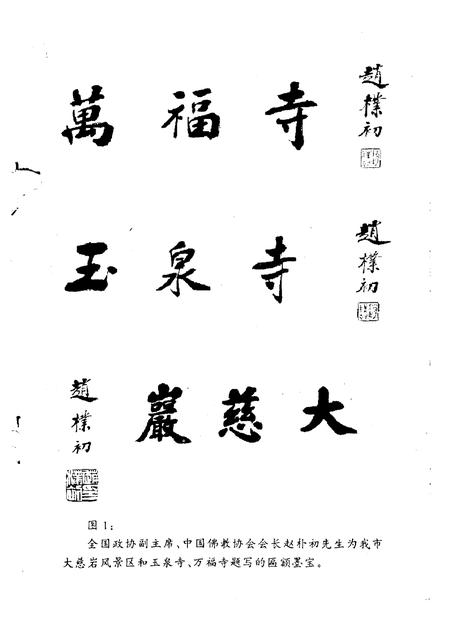 萬福寺
趙樸初
玉泉寺
趙樸初
巖慈大
趙樸初
图1：
全国政协副主席、中国佛教协会会长赵朴初先生为我市
大慈岩风景区和玉泉寺、万福寺题写的匾额墨宝。